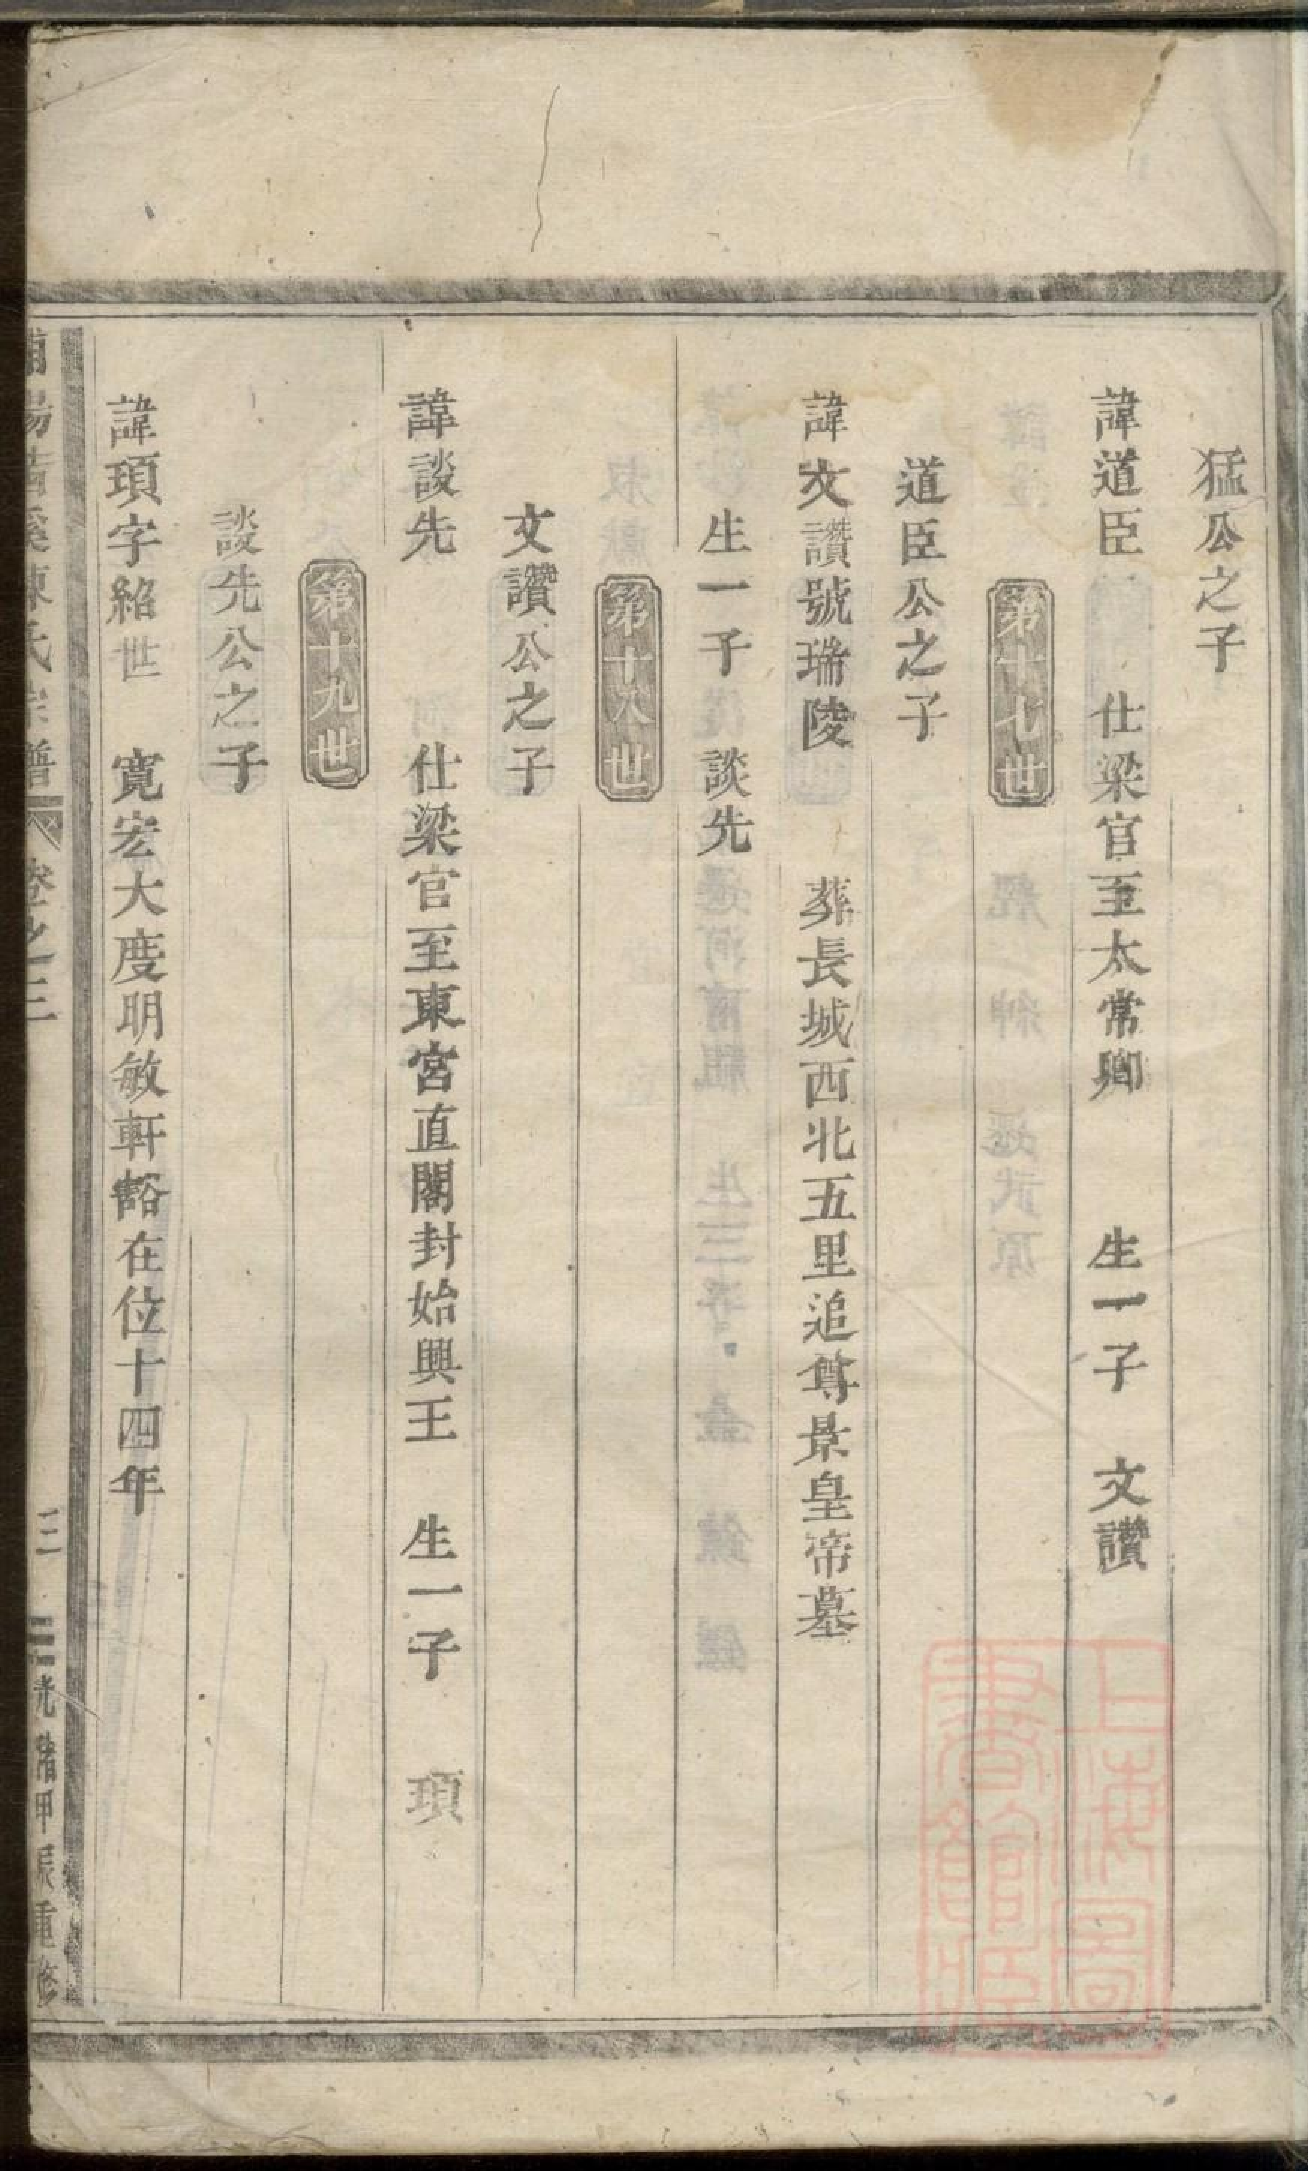 猛公之子
諱道臣　仕梁官至太常卿　生一子　文讚
第十七世
道臣公之子
諱文讚號瑞陵　葬長城西北五里追尊景皇帝墓
生一子　談先
第十八世
文讚公之子
諱談先　仕梁官至東宮直閣封始興王　生一子　頊
第十九世
談先公之子
諱頊字紹世　寬宏大度明敏軒豁在位十四年
陳氏宗譜　卷之三　三　光緒甲辰重修
上海圖
書館藏